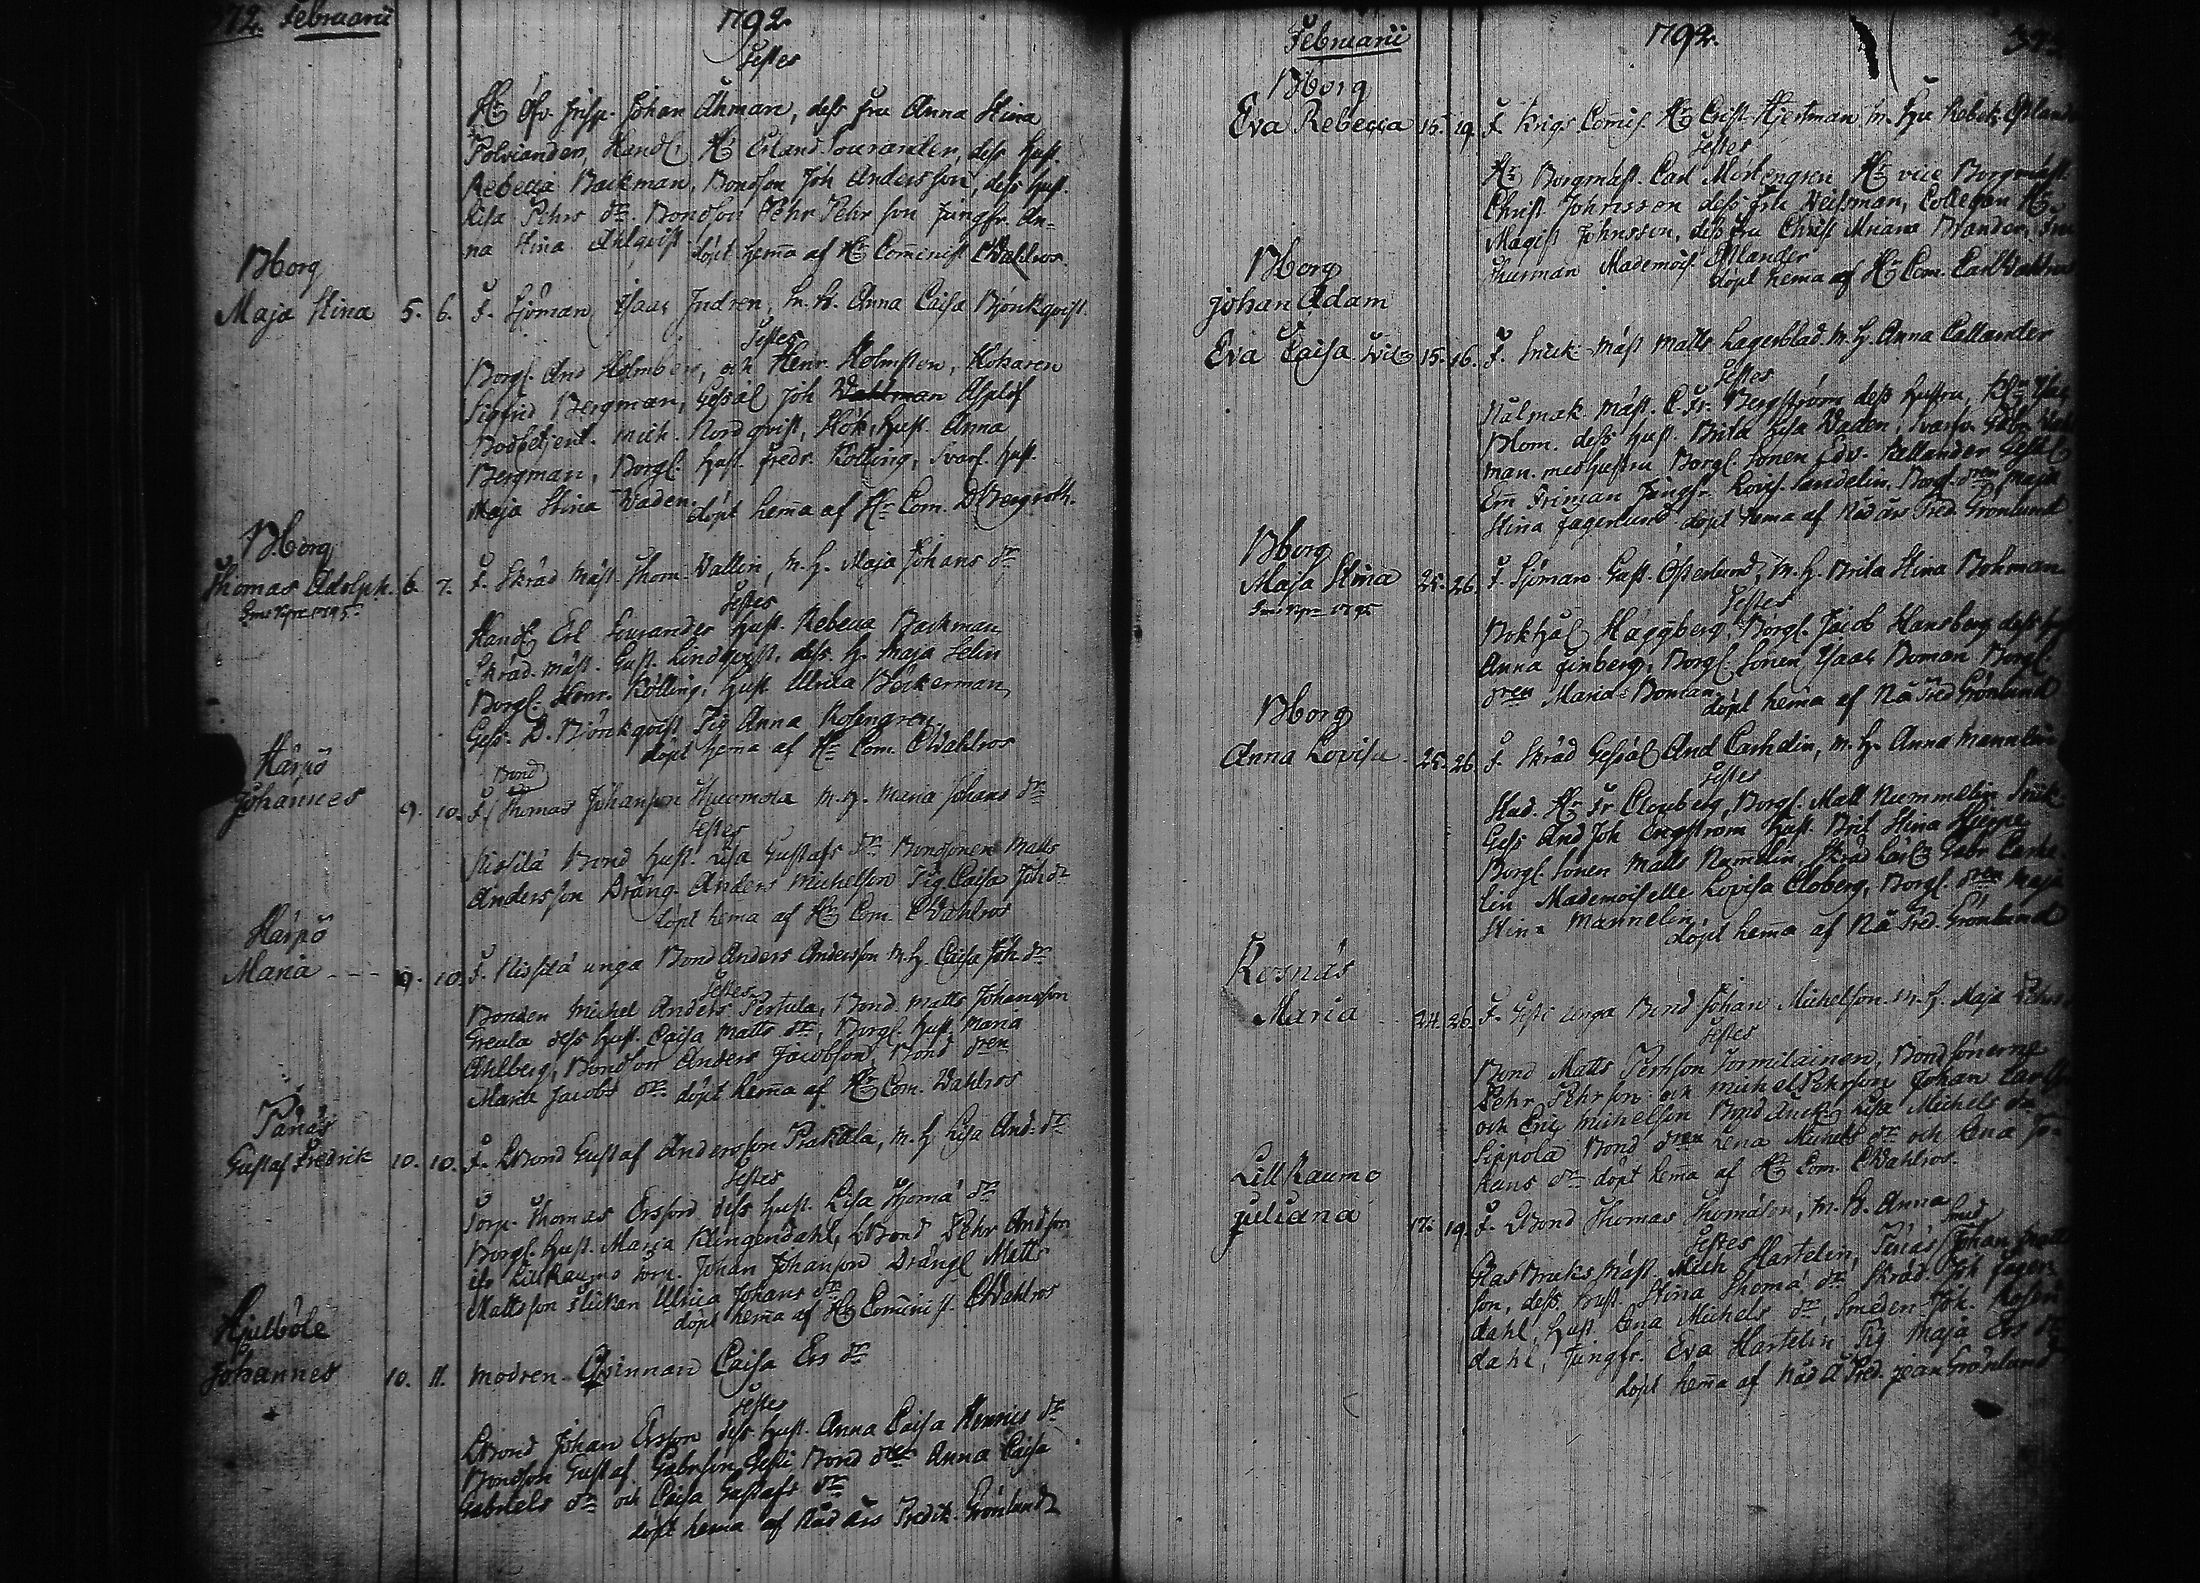 372. Februarii 1792.
Testes
Hr Öfv. Johan Åhman, dess Fru Anna Stina
Polviander, Handl. Hr Erland Sourander, dess Hust.
Rebecca Backman, Bondson Joh Andersson, dess Hust.
Lisa Pehrs dr. Bondson Pehr Pehrson Jungfr. An-
na Stina Ahlqvist
döpt hema af Hr Cominist CWahlros
Bborg
Maja Stina 5. 6. F. Sjöman Isaac Indren, m. h. Anna Caisa Björkqvist
Testes
Borgl. And Holmberg, och Henr. Holmsten, Hökaren
Sigfrid Bergman, Gesäl Joh Wahlman Asplöf
Bodbetjent. Mich. Nordqvist, Hök. Hust. Anna
Bergman, Borgl. Hust. Fredr. Kölling, Svarf. Hust.
Maja Stina Vaden. döpt hema af Hr Com. D Bergroth.
Bborg
Thomas Adolph. 6. 7. F. Skräd Mäst. Thom. Vallin, m. h. Maja Johans dr
1795.
Testes
Handl Erl Sourander Hust. Rebecca Backman
Skräd. Mäst. Gust. Lindqvist, dess. h. Maja Selin
Borgl. Henr. Kölling, Hust Ulrica Beckerman
Gess. D. Björkqvist Pig Anna Rosengren.
döpt hema af Hr Com. CWahlros
Härpö
Johannes 9. 10. F. Bond Thomas Johansson m. h. Maria Johans dr
Testes
Nissilä Bond Hust. Lisa Gustafs dr Bondsonen Matts
Andersson Dräng. Anders Michelson Pig. Caisa Joh dr
döpt hema af Hr Com. CWahlros
Härpö
Maria - - - 9. 10. F. Nissilä unga Bond Anders Andersson m. h. Caisa Joh. dr
Testes
Bonden Michel Anders Pertula, Bond. Matts Johansson
Greula dess Hust. Caisa Matts dr, Borgl. Hust Maria
Ahlberg, Bondson Anders Jacobsson, Bond dren
Maria Jacobs dr. döpt hema af Hr Com. Wahlros
Tänäs
Gustaf Fredric 10. 10. F. LBond Gustaf Andersson Prakala, m. h. Lisa And. dr
Testes
Torp. Thomas Ersson dess Hust. Lisa Thoma dr
Borgl. Hust. Maria Klingendahl, LBond Pehr Andson
LillRaumo Torp. Johan Johansson Drängl. Matts
Mattsson Flickan Ulrica Johans dr
döpt hema af Hr Cominist CWahlros
Hjulböle
Johannes 10. 11. modren Qvinnan Caisa Ers dr
Testes
LBond Johan Ersson dess Hust. Anna Caisa Henrics dr
Bondson Gustaf Gabrson Bond dren Anna Caisa
Gabriels dr och Caisa Gustafs dr
döpt hema af Nåd års Predik. Grönlund
Februarii 1792.
Bborg
Eva Rebecca 15. 19. F. Krigs Comis. Hr Crist. Hjertman m. Fru Rebek.
Testes
Hr Borgmäst. Carl Mörtengren Hr vice Borgmäst
Christ Johnsson dess Fru Veisman, Collegan Hr
Magist Johnsson, dess Fru Christ Miriam Brander, Fru
Mademois
döpt hema af Hr Com. Carl Wahlros
Bborg
Johan Adam
Eva Caisa 15. 16. F. Snick Mäst Matts Lagerblad. m. h. Anna Callander
Testes
Nålmak. Mäst. C. Fr. Bergström dess Hustru,
Blom. dess Hust. Brita Lisa Vaden, Svarfv. Gabr.
man. med Hustru Borgl. Sonen Edv. Kallander Gesäl
Em Friman Jungfr. Lovis. Sandelin. Borgl. dren Maja
Stina Fagerlund. döpt hema af Nåd års Pred. Grönlund
Bborg
Maja Stina 25. 26. F. Sjöman Gust. Österlund, m. h. Brita Stina Bohman
1795
Testes
Bokhål Häggberg, Borgl. Jacob Hansberg dess
Anna Finberg, Borgl. Sonen Isaac Boman Borgl.
dren Maria Boman. döpt hema af Nå Pred Grönlund
Bborg
Anna Lovisa 25. 26. F. Skräd Gesäl And Carhelin, m. h. Anna Mannelin
Testes
Hr Fr Clouberg, Borgl. Matt Nummelin Snick
Gess And Joh Engström Hust. Brit Stina
Borgl. Sonen Matts Numelin, Skräd Lärl Gabr. Carhe-
lin Mademoiselle Lovisa Cloberg, Borgl dren Maja
Stina Mannelin,
döpt hema af Nå Pred. Grönlund
Kosnäs
Maria 24. 26. F. unga Bond Johan Michelson. m. h. Maja Pehrs
Testes
Bond Matts Perhson Sormilainen, Bondsönerne
Pehr Pehrson och Michel Pehrson Johan Carlsson
och Eric Michelson Lisa Michels dr
Sippola Bond dren Lena Michels dr och Lena Jo-
hans dr döpt hema af Hr Com. CWahlros.
LillRaumo
Juliana 17. 19. F. LBond Thomas Thomasson, m. h. Anna
Testes
Glas Bruks Mäst. Mich Hartelin, Tänäs Smed Johan
son, dess Hust. Stina Thoma dr Skräd. Joh Fager-
dahl, Hust. Lena Michels dr, Smeden Joh. Rosen
dahl, Jungfr. Eva Hartelin Pig Maja Ers dr
döpt hema af Nåd Å Pred. Jean Grönlund